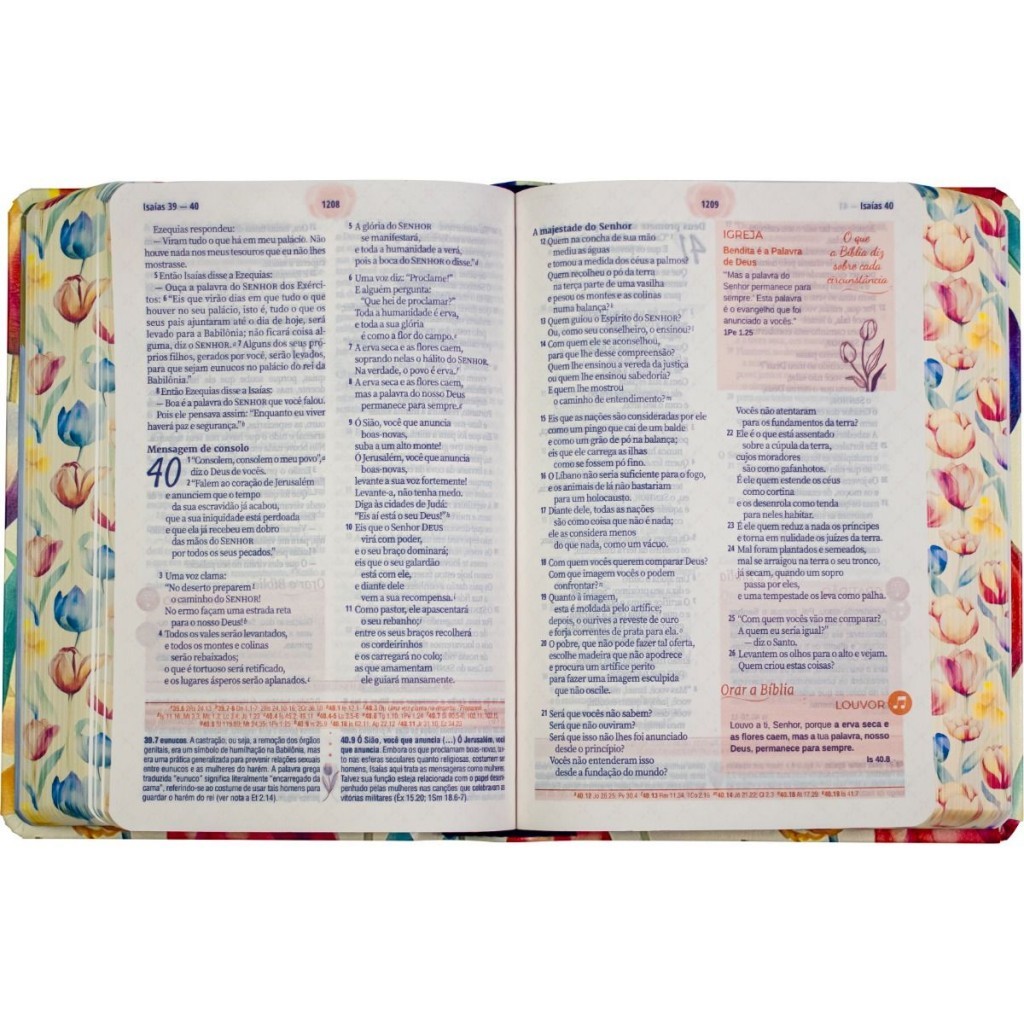 Isaías 39 — 40
1208
Ezequias respondeu:
— Viram tudo o que há em meu palácio. Não
houve nada nos meus tesouros que eu não lhes
mostrasse.
5 Então Isaías disse a Ezequias:
— Ouça a palavra do SENHOR dos Exérci-
tos: 6 "Eis que virão dias em que tudo o que
houver no seu palácio, isto é, tudo o que os
seus pais ajuntaram até o dia de hoje, será
levado para a Babilônia; não ficará coisa al-
guma, diz o SENHOR. 7 Alguns dos seus pró-
prios filhos, gerados por você, serão levados,
para que sejam eunucos no palácio do rei da
Babilônia."
8 Então Ezequias disse a Isaías:
— Boa é a palavra do SENHOR que você falou.
Pois ele pensava assim: "Enquanto eu viver
haverá paz e segurança."
Mensagem de consolo
40
1 "Consolem, consolem o meu povo",
diz o Deus de vocês.
2 "Falem ao coração de Jerusalém
e anunciem que o tempo
da sua escravidão já acabou,
que a sua iniquidade está perdoada
e que ela já recebeu em dobro
das mãos do SENHOR
por todos os seus pecados."
3 Uma voz clama:
"No deserto preparem
o caminho do SENHOR!
No ermo façam uma estrada reta
para o nosso Deus!
4 Todos os vales serão levantados,
e todos os montes e colinas
serão rebaixados;
o que é tortuoso será retificado,
e os lugares ásperos serão aplanados.
5 A glória do SENHOR
se manifestará,
e toda a humanidade a verá,
pois a boca do SENHOR o disse."
6 Uma voz diz: "Proclame!"
E alguém pergunta:
"Que hei de proclamar?"
Toda a humanidade é erva,
e toda a sua glória
é como a flor do campo.
7 A erva seca e as flores caem,
soprando nelas o hálito do SENHOR.
Na verdade, o povo é erva.
8 A erva seca e as flores caem,
mas a palavra do nosso Deus
permanece para sempre.
9 Ó Sião, você que anuncia
boas-novas,
suba a um alto monte!
Ó Jerusalém, você que anuncia
boas-novas,
levante a sua voz fortemente!
Levante-a, não tenha medo.
Diga às cidades de Judá:
"Eis aí está o seu Deus!"
10 Eis que o Senhor DEUS
virá com poder,
e o seu braço dominará;
eis que o seu galardão
está com ele,
e diante dele
vem a sua recompensa.
11 Como pastor, ele apascentará
o seu rebanho;
entre os seus braços recolherá
os cordeirinhos
e os carregará no colo;
as que amamentam
ele guiará mansamente.
39.7 eunucos. A castração, ou seja, a remoção dos órgãos
genitais, era um símbolo de humilhação na Babilônia, mas
era uma prática generalizada para prevenir relações sexuais
entre eunucos e as mulheres do harém. A palavra grega
traduzida "eunuco" significa literalmente "encarregado da
cama", referindo-se ao costume de usar tais homens para
guardar o harém do rei (ver nota a Et 2.14).
40.9 Ó Sião, você que anuncia (...) Ó Jerusalém, você
que anuncia. Embora os que proclamam boas-novas,
nas esferas seculares quanto religiosas, costumem
homens, Isaías aqui trata as mensageiras como mulheres.
Talvez sua função esteja relacionada com o papel desem-
penhado pelas mulheres nas canções que celebravam
vitórias militares (Êx 15.20; 1Sm 18.6-7).
1209
Isaías 40
A majestade do Senhor
12 Quem na concha de sua mão
mediu as águas
e tomou a medida dos céus a palmos?
Quem recolheu o pó da terra
na terça parte de uma vasilha
e pesou os montes e as colinas
numa balança?
13 Quem guiou o Espírito do SENHOR?
Ou, como seu conselheiro, o ensinou?
14 Com quem ele se aconselhou,
para que lhe desse compreensão?
Quem lhe ensinou a vereda da justiça
ou quem lhe ensinou sabedoria?
E quem lhe mostrou
o caminho de entendimento?
15 Eis que as nações são consideradas por ele
como um pingo que cai de um balde
e como um grão de pó na balança;
eis que ele carrega as ilhas
como se fossem pó fino.
16 O Líbano não seria suficiente para o fogo,
e os animais de lá não bastariam
para um holocausto.
17 Diante dele, todas as nações
são como coisa que não é nada;
ele as considera menos
do que nada, como um vácuo.
18 Com quem vocês querem comparar Deus?
Com que imagem vocês o podem
confrontar?
19 Quanto à imagem,
esta é moldada pelo artífice;
depois, o ourives a reveste de ouro
e forja correntes de prata para ela.
20 O pobre, que não pode fazer tal oferta,
escolhe madeira que não apodrece
e procura um artífice perito
para fazer uma imagem esculpida
que não oscile.
21 Será que vocês não sabem?
Será que não ouviram?
Será que isso não lhes foi anunciado
desde o princípio?
Vocês não entenderam isso
desde a fundação do mundo?
IGREJA
Bendita é a Palavra
de Deus
"Mas a palavra do
Senhor permanece para
sempre." Esta palavra
é o evangelho que foi
anunciado a vocês."
1Pe 1.25
O que
a Bíblia diz
sobre cada
circunstância
Vocês não atentaram
para os fundamentos da terra?
22 Ele é o que está assentado
sobre a cúpula da terra,
cujos moradores
são como gafanhotos.
É ele quem estende os céus
como cortina
e os desenrola como tenda
para neles habitar.
23 É ele quem reduz a nada os príncipes
e torna em nulidade os juízes da terra.
24 Mal foram plantados e semeados,
mal se arraigou na terra o seu tronco,
já secam, quando um sopro
passa por eles,
e uma tempestade os leva como palha.
25 "Com quem vocês vão me comparar?
A quem eu seria igual?"
— diz o Santo.
26 Levantem os olhos para o alto e vejam.
Quem criou estas coisas?
Orar a Bíblia
LOUVOR
Louvo a ti, Senhor, porque a erva seca e
as flores caem, mas a tua palavra, nosso
Deus, permanece para sempre.
Is 40.8